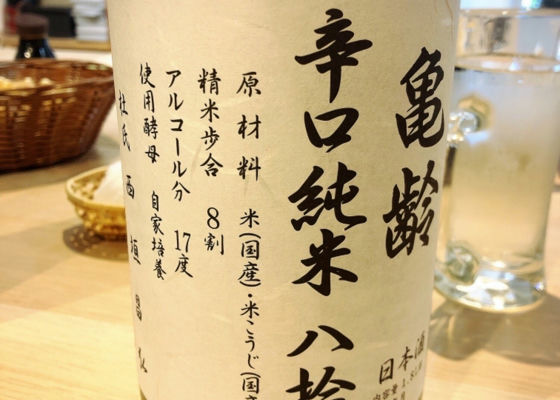 亀齢
辛口純米 八拾
日本酒
内容量 1.8
原材料 米(国産)・米こうじ(国産
精米歩合 8割
アルコール分 17度
使用酵母 自家培養
杜氏 西垣